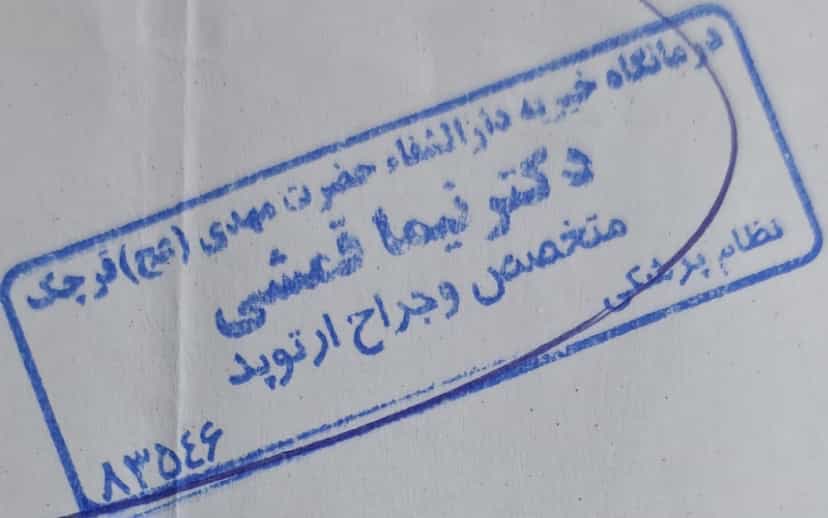 درمانگاه خیریه دارالشفاء حضرت مهدی (عج) قرچک
دکتر نیما قمشی
متخصص و جراح ارتوپد
نظام پزشکی ۸۳۵۴۶